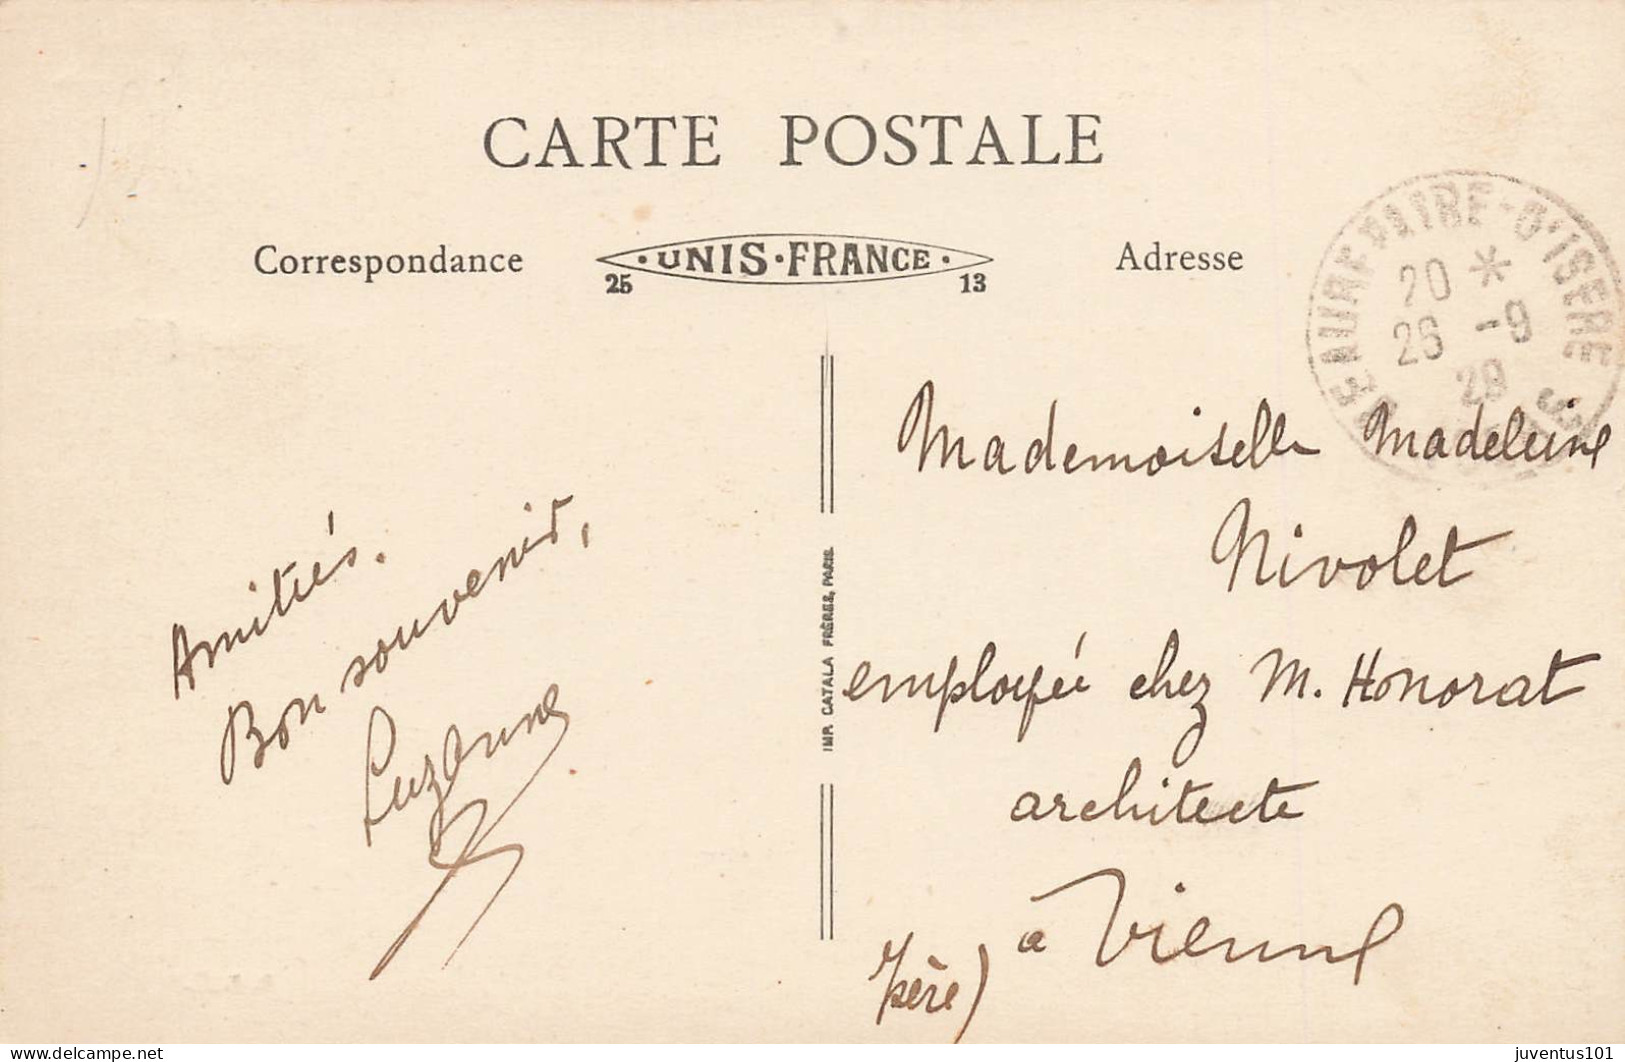 CARTE POSTALE
Correspondance
·UNIS·FRANCE·
25 13
Adresse
BEAUREPAIRE-D'ISERE
20 *
26 -9
Amitiés.
Bon souvenir,
Suzanne
IMP. CATALA FRÈRES, PARIS.
Mademoiselle Madeleine
Nivolet
employée chez M. Honorat
architecte
à Vienne
Isère)
delcampe.net
juventus101